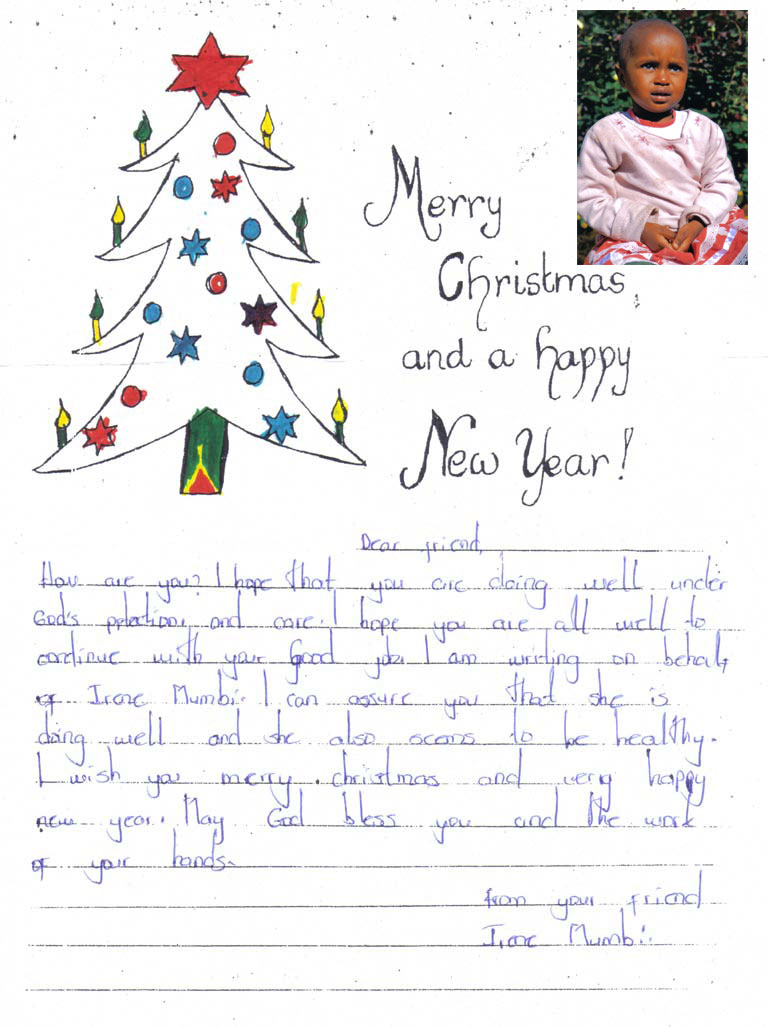 Merry
Christmas,
and a happy
New Year!
Dear friend,
How are you? I hope that you are doing well under
God's protection, and care. I hope you are all well to
continue with your good job. I am writing on behalf
of Irene Mumbi. I can assure you that she is
doing well and she also seems to be healthy.
I wish you merry christmas and very happy
new year. May God bless you and the work
of your hands.
from your friend
Irene Mumbi.